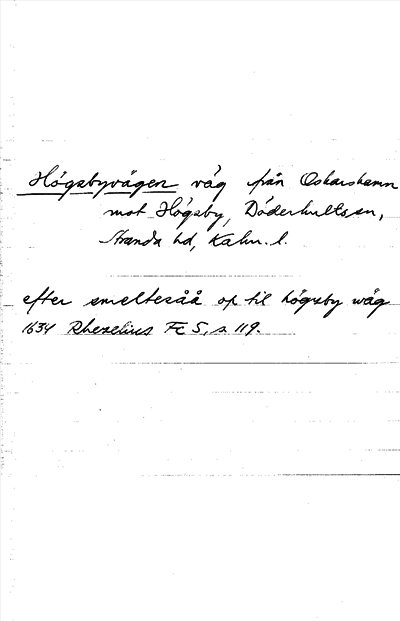 Högsbyvägen väg från Oskarshamn
mot Högsby, Döderhults sn,
Stranda hd, Kalm. l.
efter smeltesåå op til högsby wäg
1634 Rhezelius Fc 5, s 119.